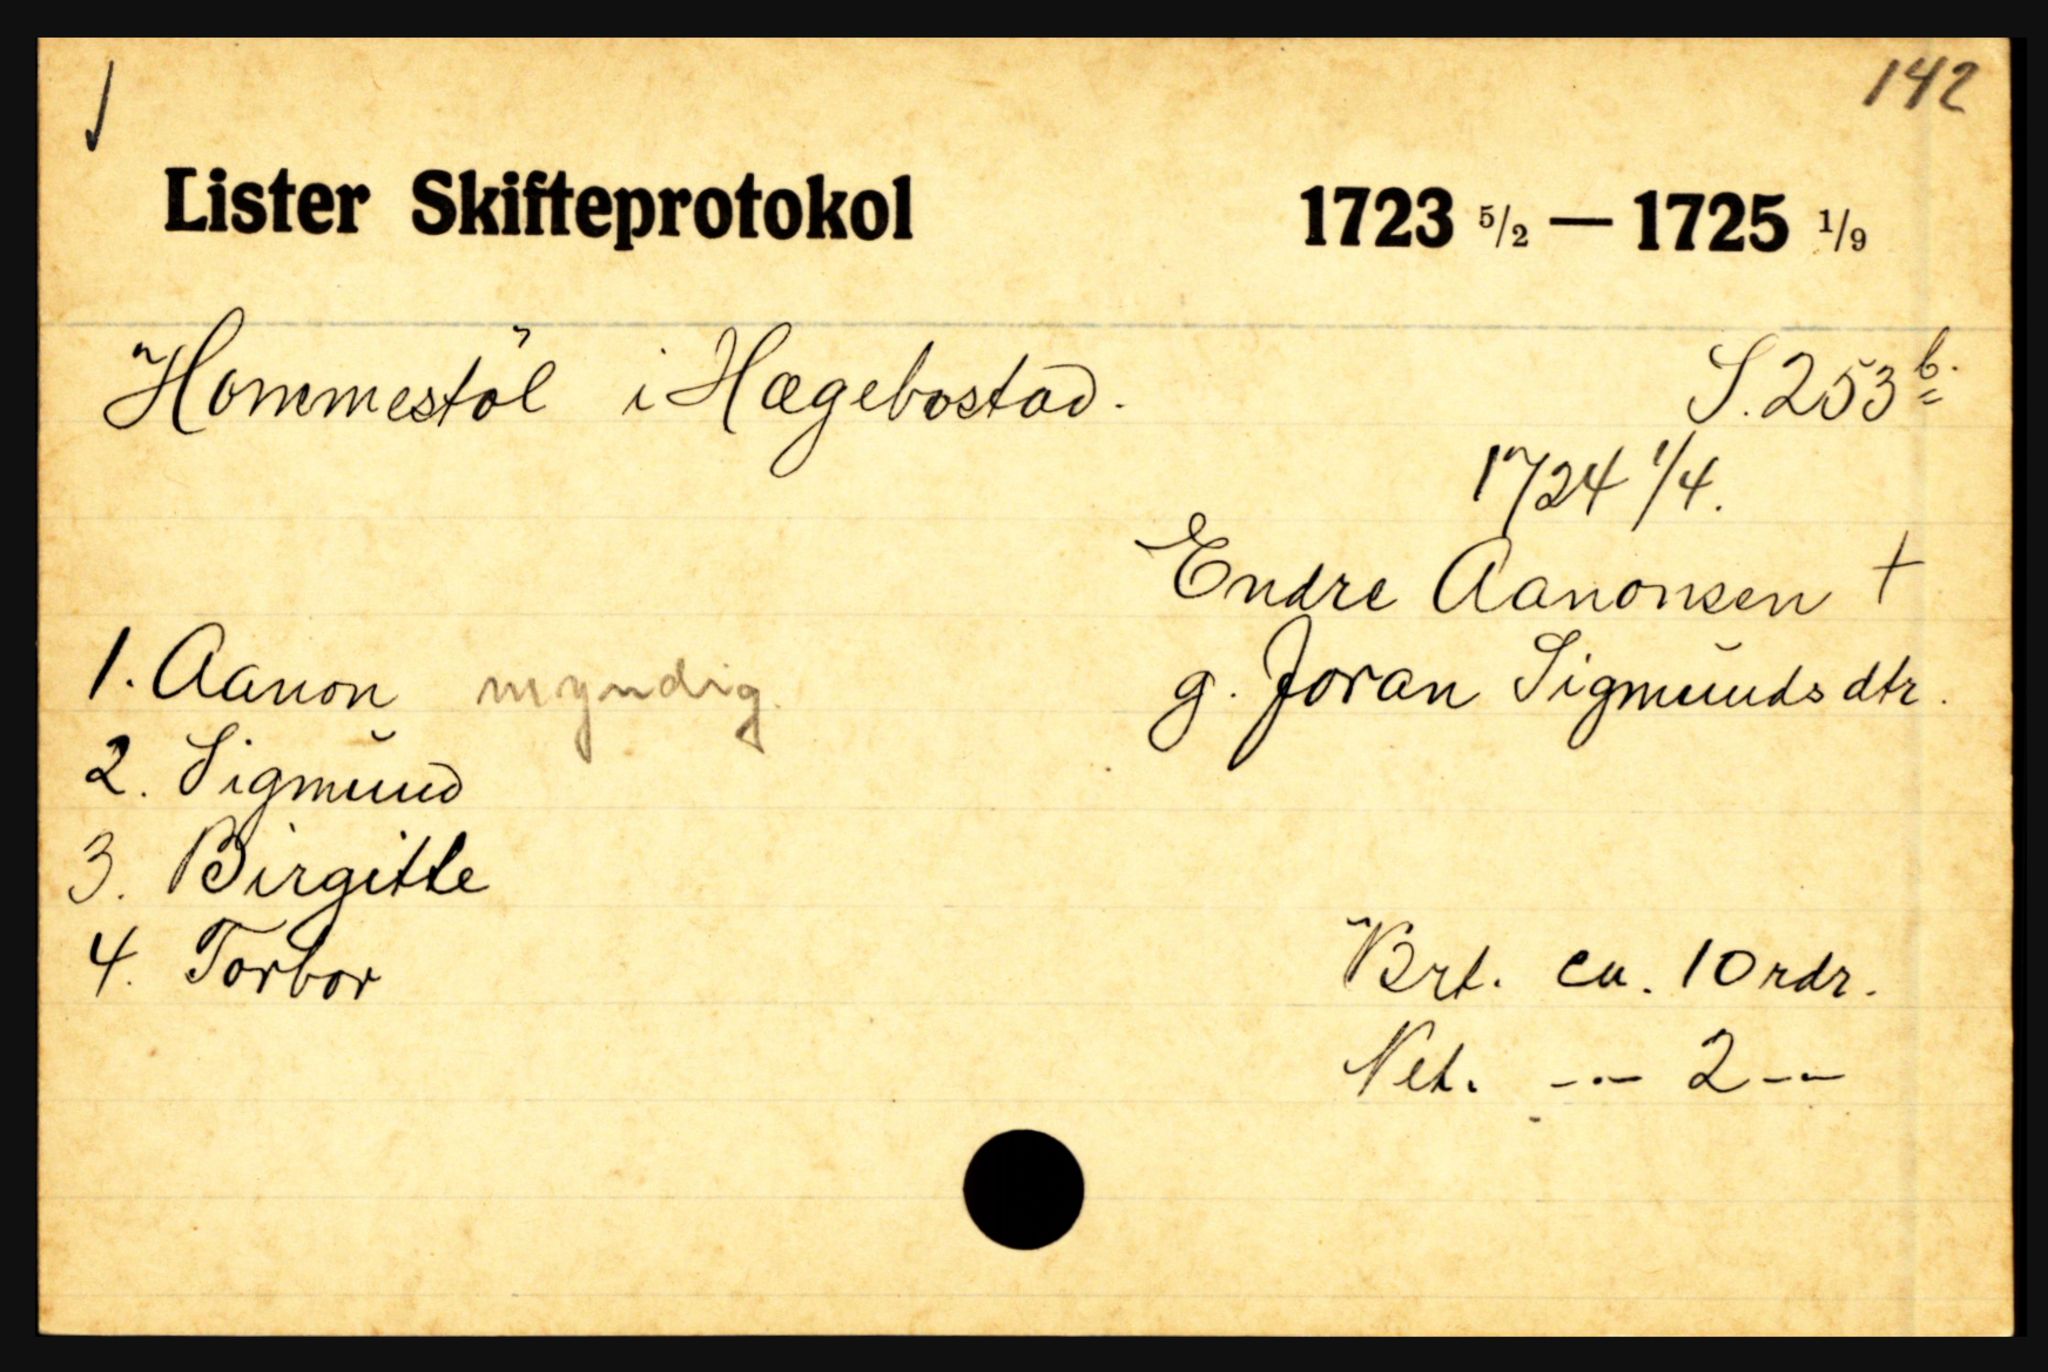 142
Lister Skifteprotokol 1723 5/2 — 1725 1/9
Hommestöl i Hægebostad. S. 253 b.
1724 1/4.
Endre Aanonsen +
g. Joran Sigmundsdtr.
1. Aanon myndig
2. Sigmund
3. Birgitte
4. Torbor
Brt. ca. 10 rdr.
Net. -"- 2 -"-